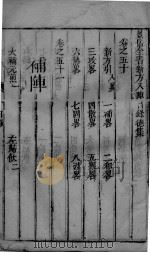 景岳全書新方八陣目錄德集
卷之五十
新方引八畧 一補畧 二和畧
三攻畧 四散畧 五寒畧
六熱畧 七固畧 八因畧
卷之五十一
補陣
大補元煎一 左歸飲二